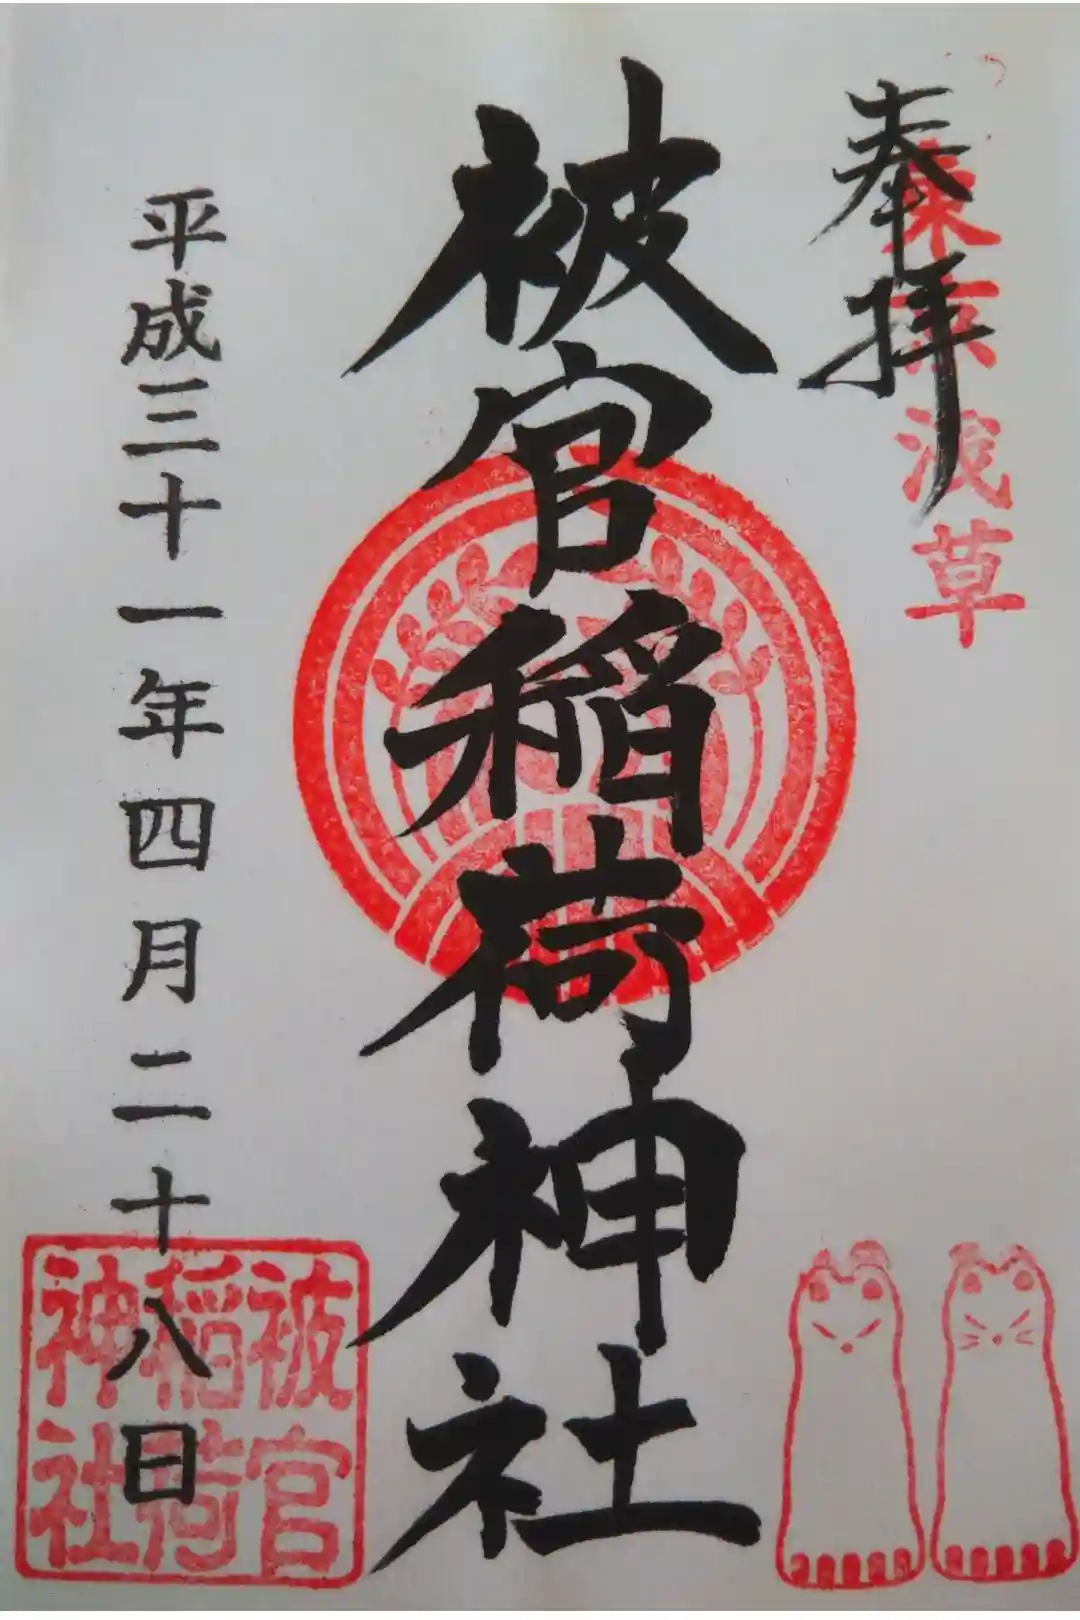 奉拝
東京浅草
被官稲荷神社
平成三十一年四月二十八日
被官
稲荷
神社